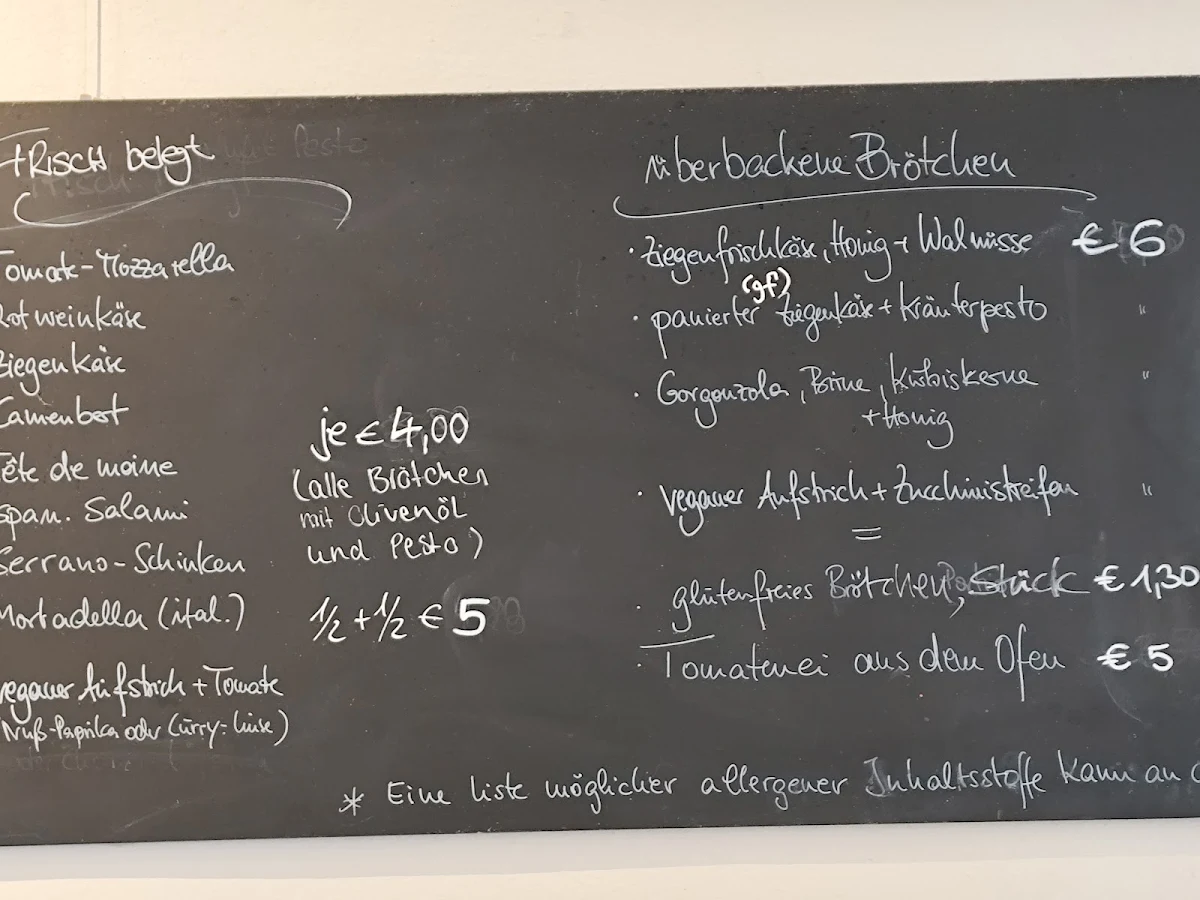 Frisch belegt
Tomate-Mozzarella
Rotweinkäse
Ziegenkäse
Camenbert
Tête de moine
Span. Salami
Serrano-Schinken
Mortadella (ital.)
veganer Aufstrich + Tomate
Nuß-Paprika oder (Curry-Linse)
je € 4,00
(alle Brötchen
mit Olivenöl
und Pesto)
1/2 + 1/2 € 5
überbackene Brötchen
· Ziegenfrischkäse, Honig + Walnüsse € 6
(gf)
· panierter Ziegenkäse + Kräuterpesto "
· Gorgonzola, Birne, Kürbiskerne "
+ Honig
· veganer Aufstrich + Zucchinistreifen "
· glutenfreies Brötchen, Stück € 1,30
· Tomatenei aus dem Ofen € 5
* Eine Liste möglicher allergener Inhaltsstoffe kann an